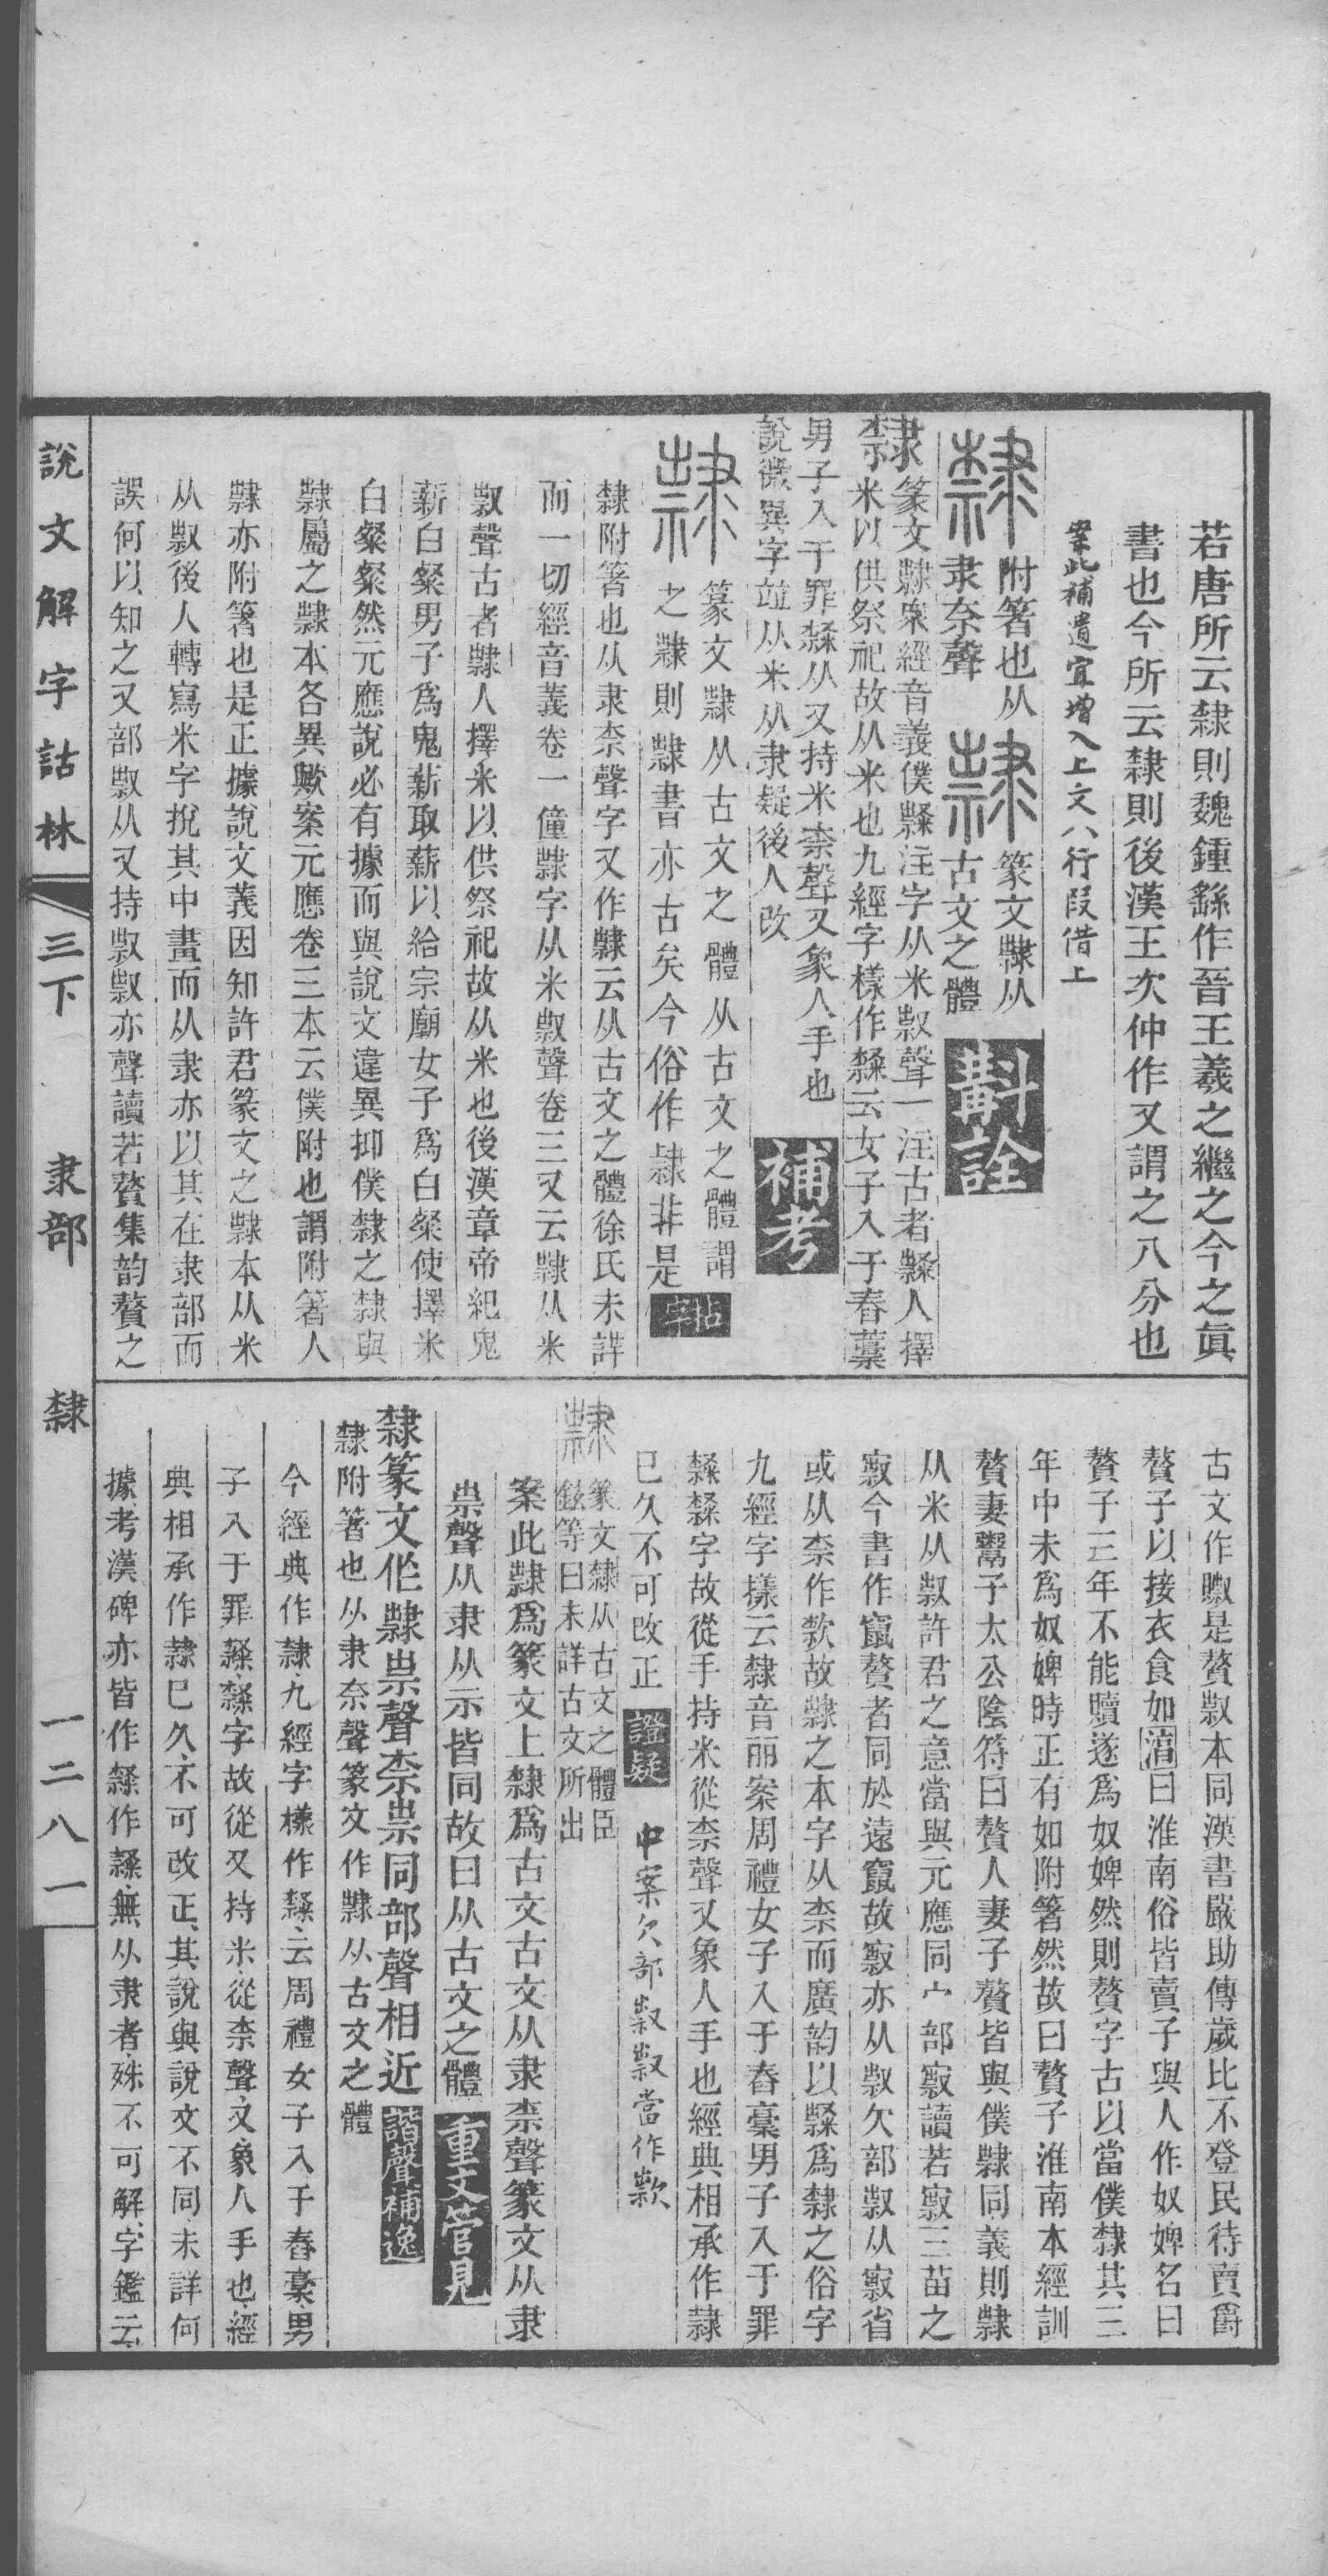 若唐所云隸則魏鍾繇作晉王羲之繼之今之眞
書也今所云隸則後漢王次仲作又謂之八分也
案此補遺宜增入上文八行叚借上
隸 附箸也从
隶柰聲
篆文隸从
古文之體
斠詮
隸篆文隸衆經音義僕隸注字从米㕞聲一注古者隸人擇
米以供祭祀故从米也九經字樣作隸云女子入于舂藁
男子入于罪隸从又持米柰聲又象人手也
說微異字竝从米从隶疑後人改
補考
篆文隸从古文之體从古文之體謂
之隸則隸書亦古矣今俗作隷非是
拈字
隸附箸也从隶柰聲字又作隸云从古文之體徐氏未詳
而一切經音義卷一僮隸字从米㕞聲卷三又云隸从米
㕞聲古者隸人擇米以供祭祀故从米也後漢章帝紀鬼
薪白粲男子爲鬼薪取薪以給宗廟女子爲白粲使擇米
白粲粲然元應說必有據而與說文違異抑僕隸之隸與
隸屬之隸本各異歟案元應卷三本云僕附也謂附箸人
隸亦附箸也是正據說文義因知許君篆文之隸本从米
从㕞後人轉寫米字挩其中畫而从隶亦以其在隶部而
誤何以知之又部㕞从又持㕞㕞亦聲讀若贅集韵贅之
古文作㕞是贅㕞本同漢書嚴助傳歲比不登民待賣爵
贅子以接衣食如淳曰淮南俗皆賣子與人作奴婢名曰
贅子三年不能贖遂爲奴婢然則贅字古以當僕隸其三
年中未爲奴婢時正有如附箸然故曰贅子淮南本經訓
贅妻鬻子太公陰符曰贅人妻子贅皆與僕隸同義則隸
从米从㕞許君之意當與元應同宀部㝮讀若㝮三苗之
㝮今書作竄贅者同於遠竄故㝮亦从㕞欠部㕞从㝮省
或从柰作款故隸之本字从柰而廣韵以隸爲隸之俗字
九經字㨾云隸音丽案周禮女子入于舂藁男子入于罪
隸隸字故從手持米從柰聲又象人手也經典相承作隸
已久不可改正
證疑
中案欠部㕞㕞當作款
隸
篆文隸从古文之體臣
鉉等曰未詳古文所出
案此隸爲篆文上隸爲古文古文从隶柰聲篆文从隶
祟聲从隶从示皆同故曰从古文之體
重文管見
隸篆文作隸祟聲柰祟同部聲相近
諧聲補逸
隸附箸也从隶柰聲篆文作隸从古文之體
今經典作隷九經字樣作隸云周禮女子入于舂藁男
子入于罪隸隸字故從又持米從柰聲又象人手也經
典相承作隸已久不可改正其說與說文不同未詳何
據考漢碑亦皆作隸作隸無从隶者殊不可解字鑑云
說文解字詁林
三下
隶部
隸
一二八一